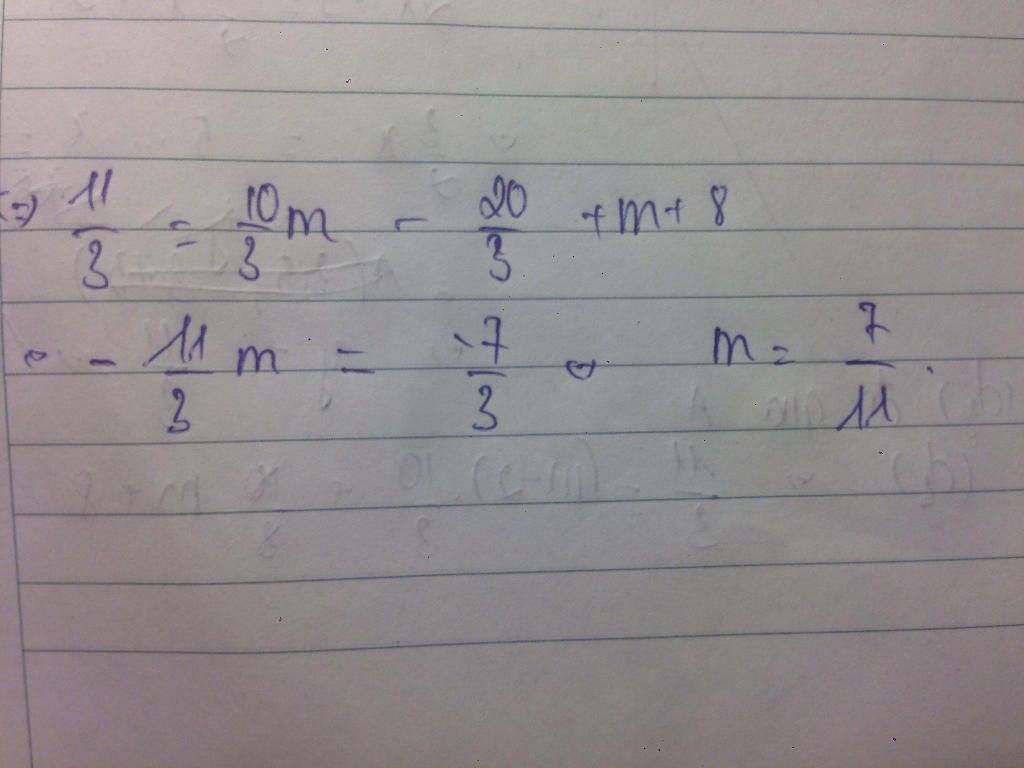 ⇔ 11/3 = 10/3 m - 20/3 + m + 8
⇔ - 11/3 m = -7/3 ⇔ m = 7/11.